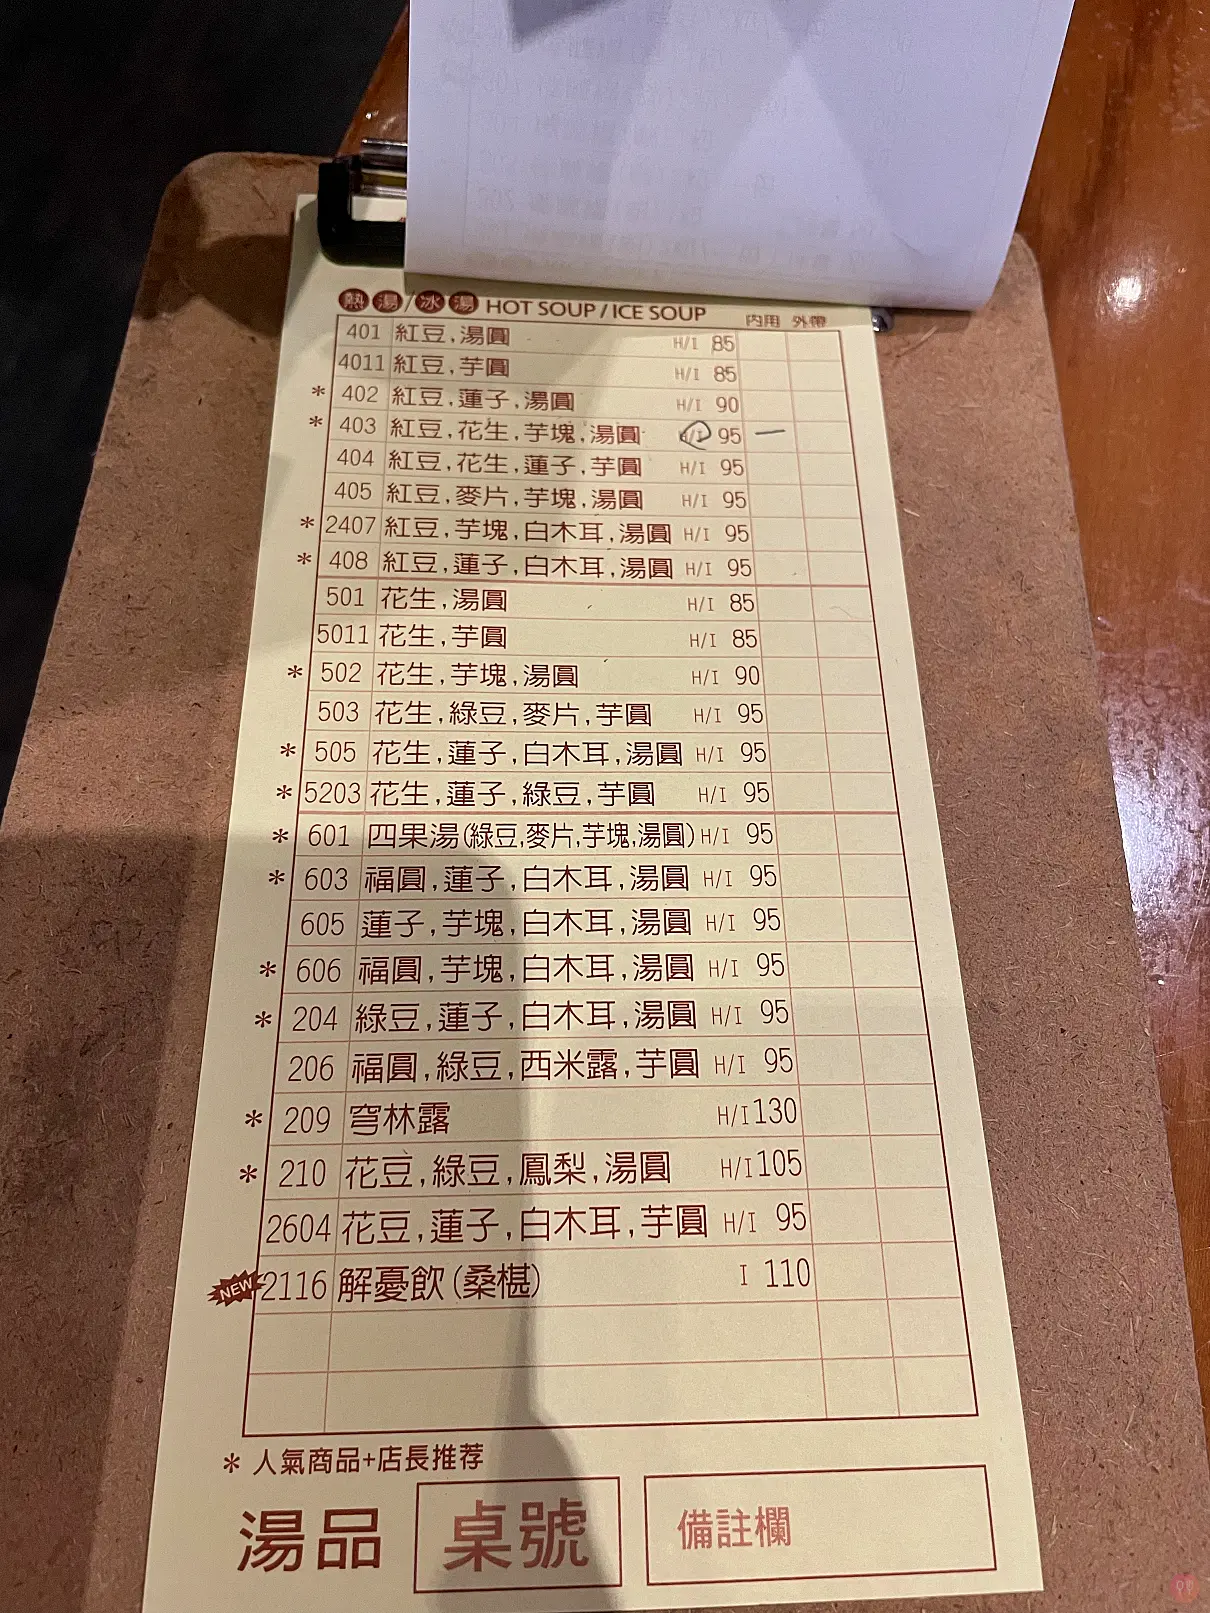 熱湯/冰湯 HOT SOUP/ICE SOUP 內用 外帶
401 紅豆,湯圓 H/I 85
4011 紅豆,芋圓 H/I 85
* 402 紅豆,蓮子,湯圓 H/I 90
* 403 紅豆,花生,芋塊,湯圓 H/I 95 一
404 紅豆,花生,蓮子,芋圓 H/I 95
405 紅豆,麥片,芋塊,湯圓 H/I 95
* 2407 紅豆,芋塊,白木耳,湯圓 H/I 95
* 408 紅豆,蓮子,白木耳,湯圓 H/I 95
501 花生,湯圓 H/I 85
5011 花生,芋圓 H/I 85
* 502 花生,芋塊,湯圓 H/I 90
503 花生,綠豆,麥片,芋圓 H/I 95
* 505 花生,蓮子,白木耳,湯圓 H/I 95
* 5203 花生,蓮子,綠豆,芋圓 H/I 95
* 601 四果湯(綠豆,麥片,芋塊,湯圓) H/I 95
* 603 福圓,蓮子,白木耳,湯圓 H/I 95
605 蓮子,芋塊,白木耳,湯圓 H/I 95
* 606 福圓,芋塊,白木耳,湯圓 H/I 95
* 204 綠豆,蓮子,白木耳,湯圓 H/I 95
206 福圓,綠豆,西米露,芋圓 H/I 95
* 209 穹林露 H/I 130
* 210 花豆,綠豆,鳳梨,湯圓 H/I 105
2604 花豆,蓮子,白木耳,芋圓 H/I 95
NEW 2116 解憂飲(桑椹) I 110
* 人氣商品+店長推荐
湯品 桌號 備註欄